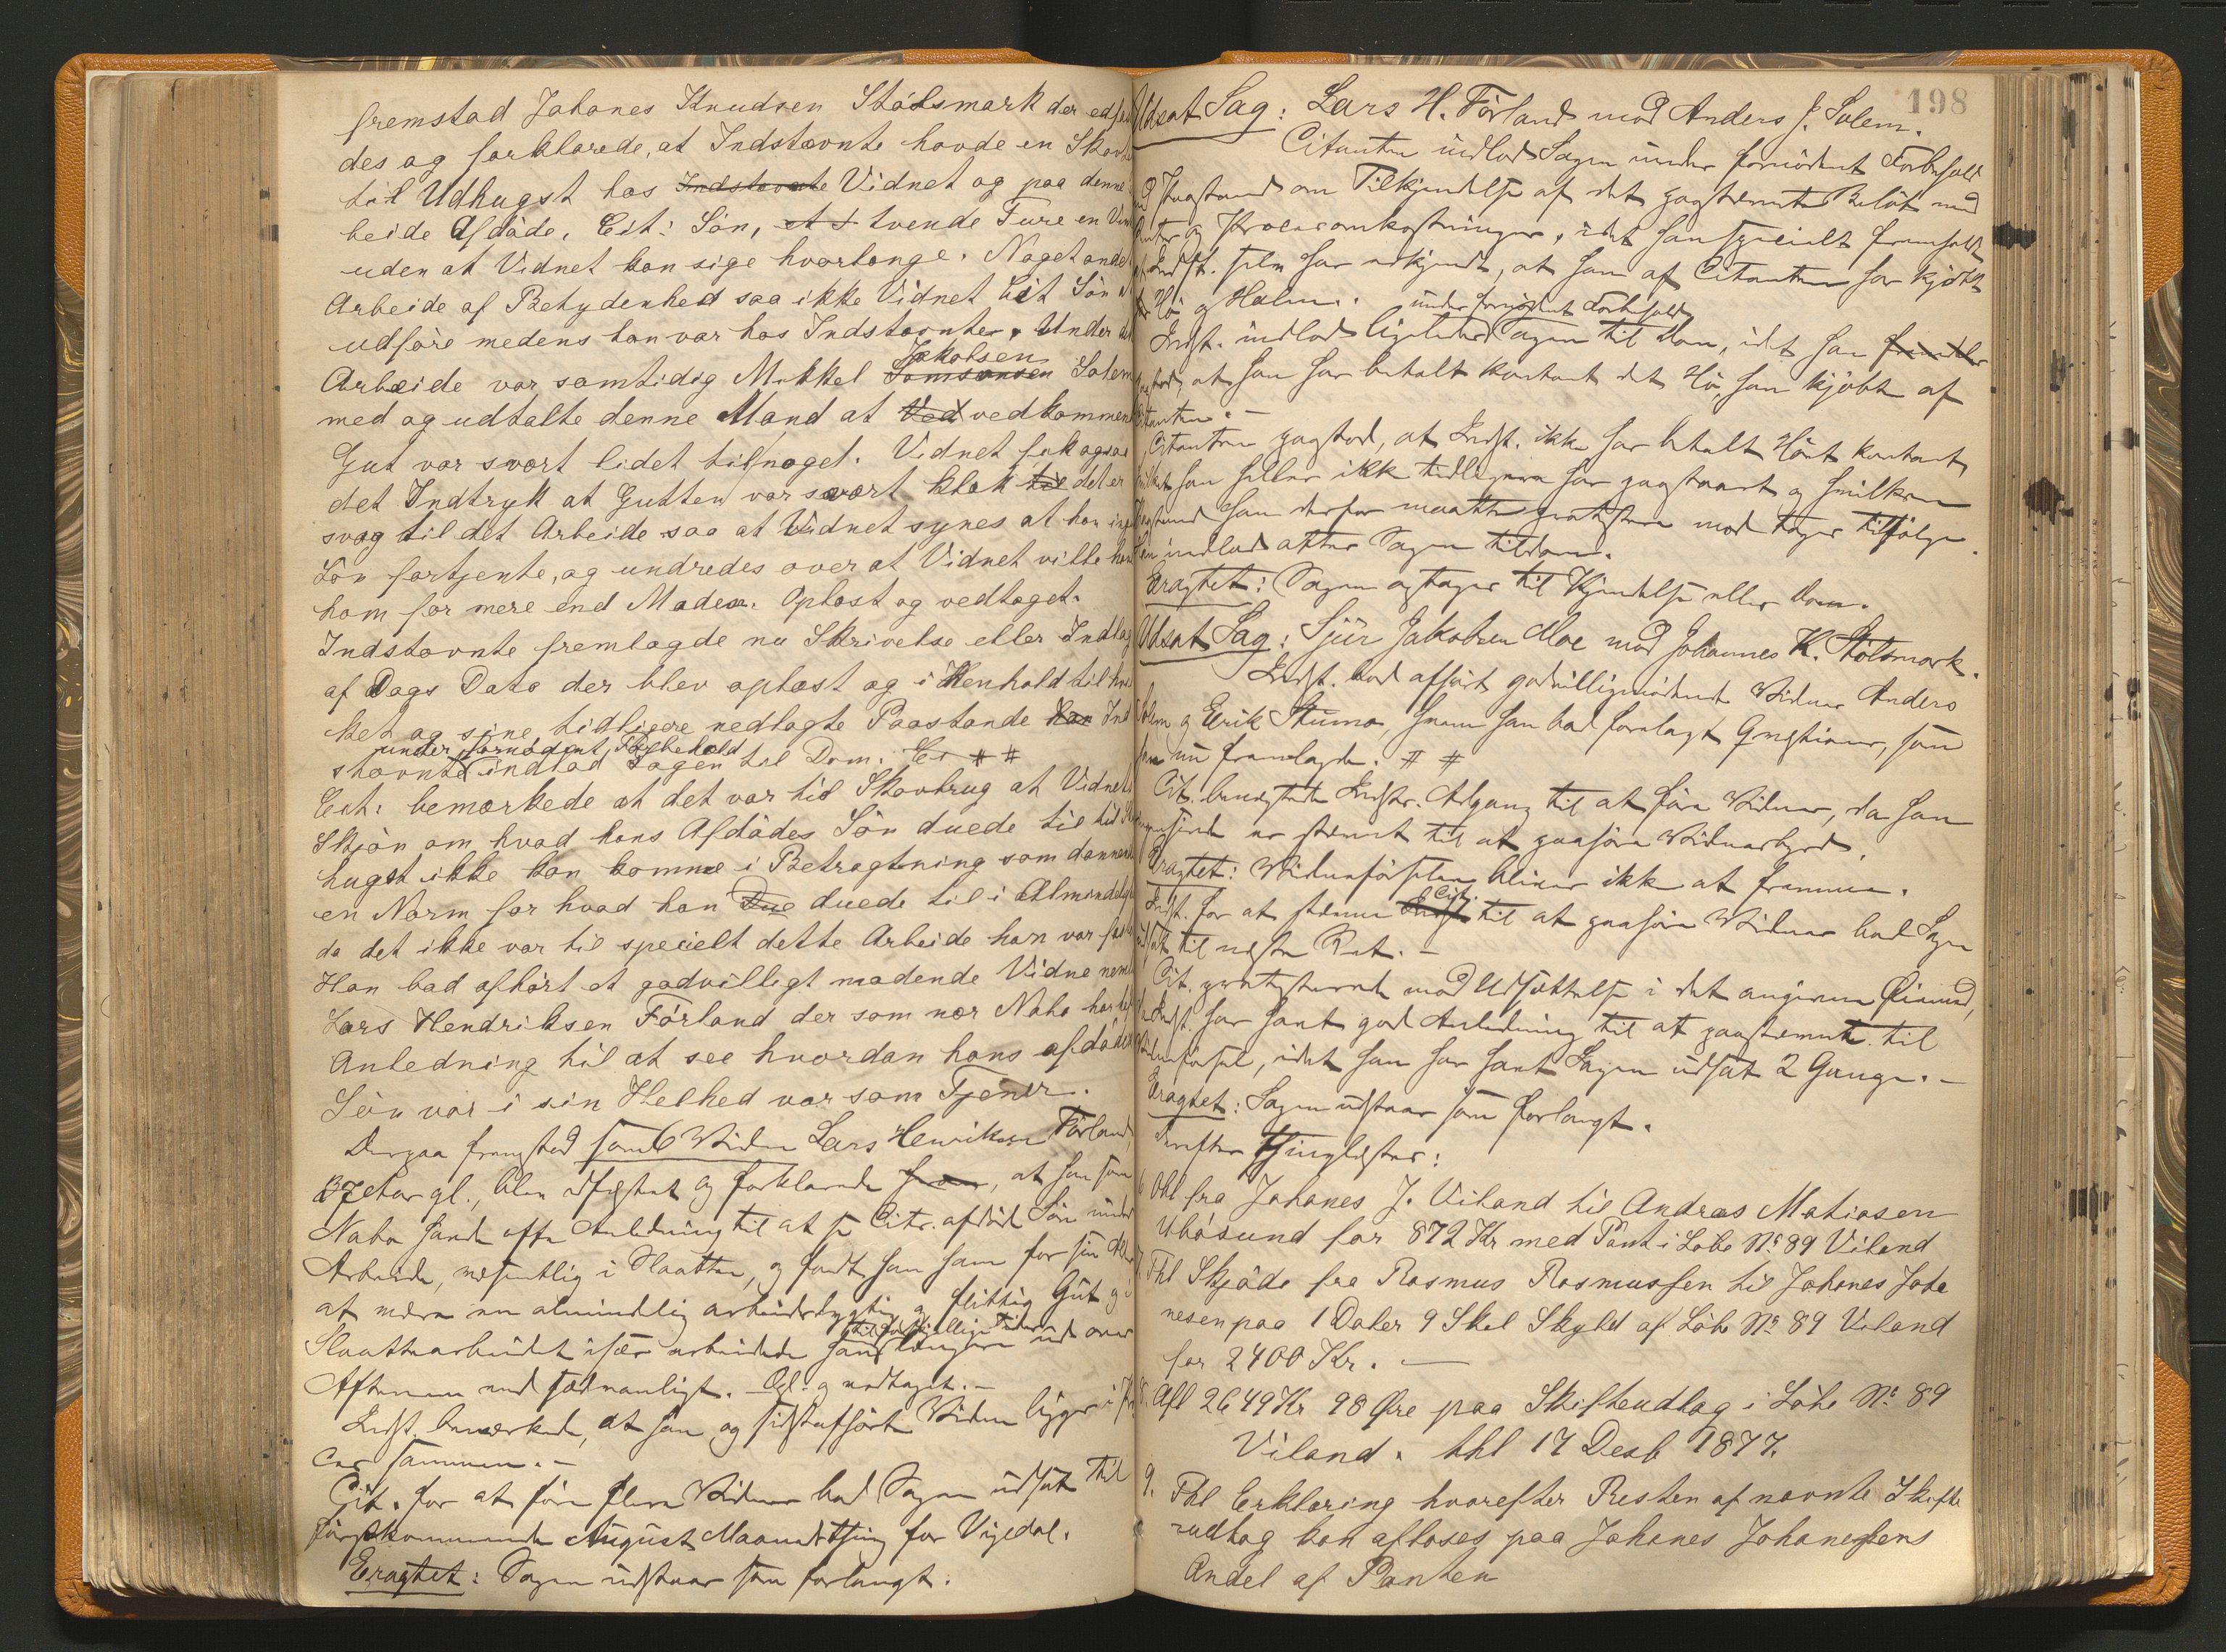 fremstod Johanes Knudsen Stölsmark der edfæ
des og forklarede, at Indstævnte havde en Skov
til Udhugst hos Indstævnte Vidnet og paa denne
beide Afdöde, Cit: Sön, et t tvende Ture en Vin
uden at Vidnet kan sige hvorlænge. Noget andet
Arbeide af Betydenhed saa ikke Vidnet Cit Sön
udföre medens han var hos Indstævnte. Under
Arbeide var samtidig Mikkel Samsonsen Jakobsen Solem
med og udtalte denne Mand at Ved vedkommen
Gut var svært lidet tilnoget. Vidnet fik ogsaa
det Indtryk at Gutten var svært klak til det er
svag til det Arbeide saa at Vidnet synes at han inge
Lön fortjente, og undredes over at Vidnet vilde have
ham for mere end Maden. Oplæst og vedtaget.
Indstævnte fremlagde nu Skrivelse eller Indlæg
af Dags Dato der blev oplæst og i Henhold til hvil
ket og sine tidligere nedlagte Paastande han Ind
under fornödent Forbehold
stævnte indlod Sagen til Dom. Er # #
Cit: bemærkede at det var til Skovbrug at Vidnets
Skjön om hvad hans Afdödes Sön duede til
hugst ikke kan komme i Betragtning som dannende
en Norm for hvad han Due duede til i Almindelig
da det ikke var til specielt dette Arbeide han var fæ
Han bad afhört et godvilligt mödende Vidne neml
Lars Hendriksen Förland der som nær Nabo har
Anledning til at see hvordan hans afdöde
Sön var i sin Helhed var som Tjener.
Derpaa fremstod som 6 Vidne Lars Henriksen Förland,
37 Aar gl., blev edfæstet og forklarede han, at han som
Nabo havde ofte Anledning til at se Citr. afdöde Sön under
Arbeide, nemlig i Slaatten, og fandt han ham for sin Al
at være en almindelig arbeidsdygtig og flittig Gut og i
til forskjellige Tider
Slaattearbeidet især arbeidede han længere ud over
Aftenen end sædvanligt. Opl. og vedtaget.-
Indst. bemærkede, at han og sidstafhörte Vidne ligger i Pro
ces sammen.-
Cit. for at före flere Vidner bad Sagen udsat til
förstkommende August Maanedsthing for Vigedal.
Eragtet: Sagen udstaar som forlangt.
198
Udsat Sag: Lars H. Förland mod Anders J. Solem.
Citanten indlod Sagen under fornödent Forbehold
med Paastand om Tilkjendelse af det paastævnte Belöb med
Renter og Procesomkostninger, idet han specielt fremholdt
at Indst. selv har erkjendt, at han af Citanten har kjöbt
Hö og Halm.
under fornödent Forbehold
Indst. indlod ligeledes Sagen til Dom, idet han
paastod, at han har betalt kontant det Hö, han kjöbt af
Citanten.-
Citanten paastod, at Indst. ikke har betalt Höet kontant,
hvilket han heller ikke tidligere har paastaaet og hvilken
Paastand han derfor maatte protestere mod tages tilfölge.
Han indlod atter Sagen tildom.
Eragtet: Sagen optages til Kjendelse eller Dom.
Udsat Sag: Sjur Jakobsen Moe mod Johannes K. Stölsmark.
Indst. bad afhört godvilligmödende Vidner Anders
Solem og Eerik Stumo hvem han bad forelagt Qvestioner, som
han nu fremlagde. # #
Cit. benegtede Indstr. Adgang til at före Vidner, da han
ikke er stævnet til at paahöre Vidnesbyrd.
Eragtet: Vidneförslen bliver ikke at fremme.
Indst. for at stevne Indst. Cit. til at paahöre Vidner bad Sagen
udsat til neste Ret.-
Cit. protesterede mod Udsættelse i det angivne Öiemed,
da Indst. har havt god Anledning til at paastevnte til
Vidneförsel, idet han har havt Sagen udsat 2 Gange.-
Eragtet: Sagen udstaar som forlangt.
Derefter thinglæstes:
6 Obl fra Johanes J. Viland til Andreas Matiasen
Ubösund for 872 Kr med Pant i Löbe No 89 Viland
7. Thl Skjöde fra Rasmus Rasmussen til Johanes Joha
nesen paa 1 Daler 9 Skil Skyld af Löbe No 89 Viland
for 2400 Kr. —
8. Afl 2649 Kr 98 Öre paa Skifteudlæg i Löbe No 89
Viland. thl 17 Desb 1877.
9. Thl Erklæring hvorefter Resten af nævnte Skifte
rudlæg kan aflöses paa Johanes Johanessens
Andel af Panten